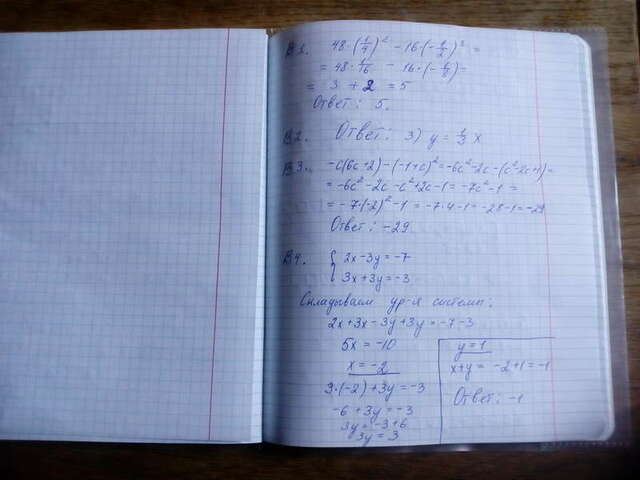 В1. 48·(1/4)² − 16·(−1/2)³ =
= 48·1/16 − 16·(−1/8) =
= 3 + 2 = 5
Ответ: 5.
В2. Ответ: 3) y = 1/3 x
В3. −c(6c+2)−(−1+c)² = −6c²−2c−(c²−2c+1) =
= −6c²−2c−c²+2c−1 = −7c²−1 =
= −7·(−2)²−1 = −7·4−1 = −28−1 = −29
Ответ: −29.
В4. { 2x−3y=−7
3x+3y=−3
Складываем ур-я системы:
2x+3x−3y+3y=−7−3
5x=−10
x=−2
3·(−2)+3y=−3
−6+3y=−3
3y=−3+6
3y=3
y=1
x+y=−2+1=−1
Ответ: −1